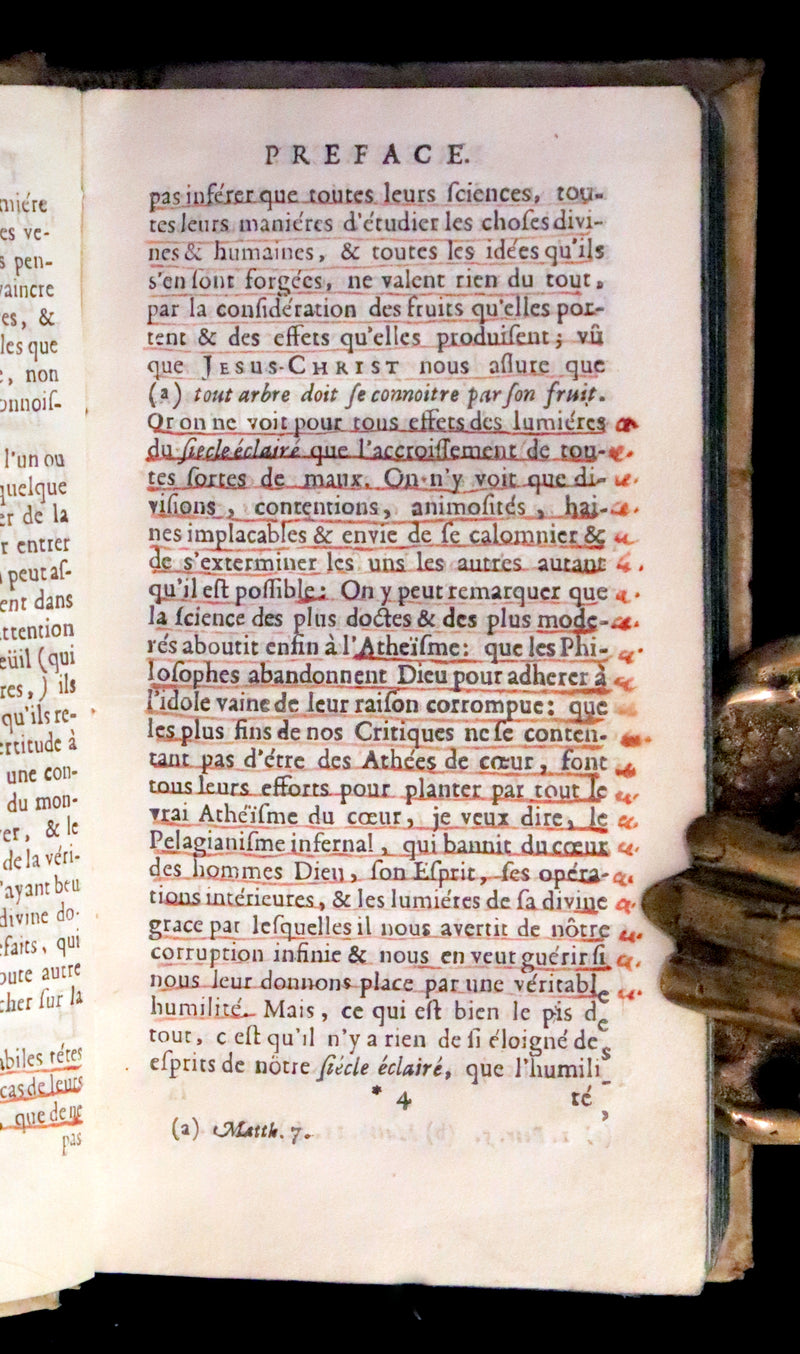 miére
es ve-
s pen-
vaincre
es, &
les que
e, non
onnois-
l'un ou
quelque
er de la
r entrer
peut as-
ent dans
ttention
eüil (qui
res,) ils
qu'ils re-
rtitude à
une con-
du mon-
er, & le
de la véri-
'ayant beu
divine do-
faits, qui
oute autre
cher ſur la
abiles tétes
cas de leurs
, que de ne
pas
PREFACE.
pas inférer que toutes leurs ſciences, tou-
tes leurs maniéres d'étudier les choſes divi-
nes & humaines, & toutes les idées qu'ils
s'en ſont forgées, ne valent rien du tout,
par la conſidération des fruits qu'elles por-
tent & des effets qu'elles produiſent; vû
que JESUS-CHRIST nous aſſure que
(a) tout arbre doit ſe connoitre par ſon fruit.
Or on ne voit pour tous effets des lumiéres
du ſiecle éclairé que l'accroiſſement de tou-
tes ſortes de maux. On n'y voit que di-
viſions, contentions, animoſités, hai-
nes implacables & envie de ſe calomnier &
de s'exterminer les uns les autres autant
qu'il eſt poſſible: On y peut remarquer que
la ſcience des plus doctes & des plus mode-
rés aboutit enfin à l'Atheïſme: que les Phi-
loſophes abandonnent Dieu pour adherer à
l'idole vaine de leur raiſon corrompue: que
les plus fins de nos Critiques ne ſe conten-
tant pas d'étre des Athées de cœur, font
tous leurs efforts pour planter par tout le
vrai Athéïſme du cœur, je veux dire, le
Pelagianiſme infernal, qui bannit du cœur
des hommes Dieu, ſon Eſprit, ſes opéra-
tions intérieures, & les lumiéres de ſa divine
grace par leſquelles il nous avertit de nôtre
corruption infinie & nous en veut guérir ſi
nous leur donnons place par une véritable
humilité. Mais, ce qui eſt bien le pis de
tout, c eſt qu'il n'y a rien de ſi éloigné des
eſprits de nôtre ſiécle éclairé, que l'humili-
* 4 té,
(a) Matth. 7.